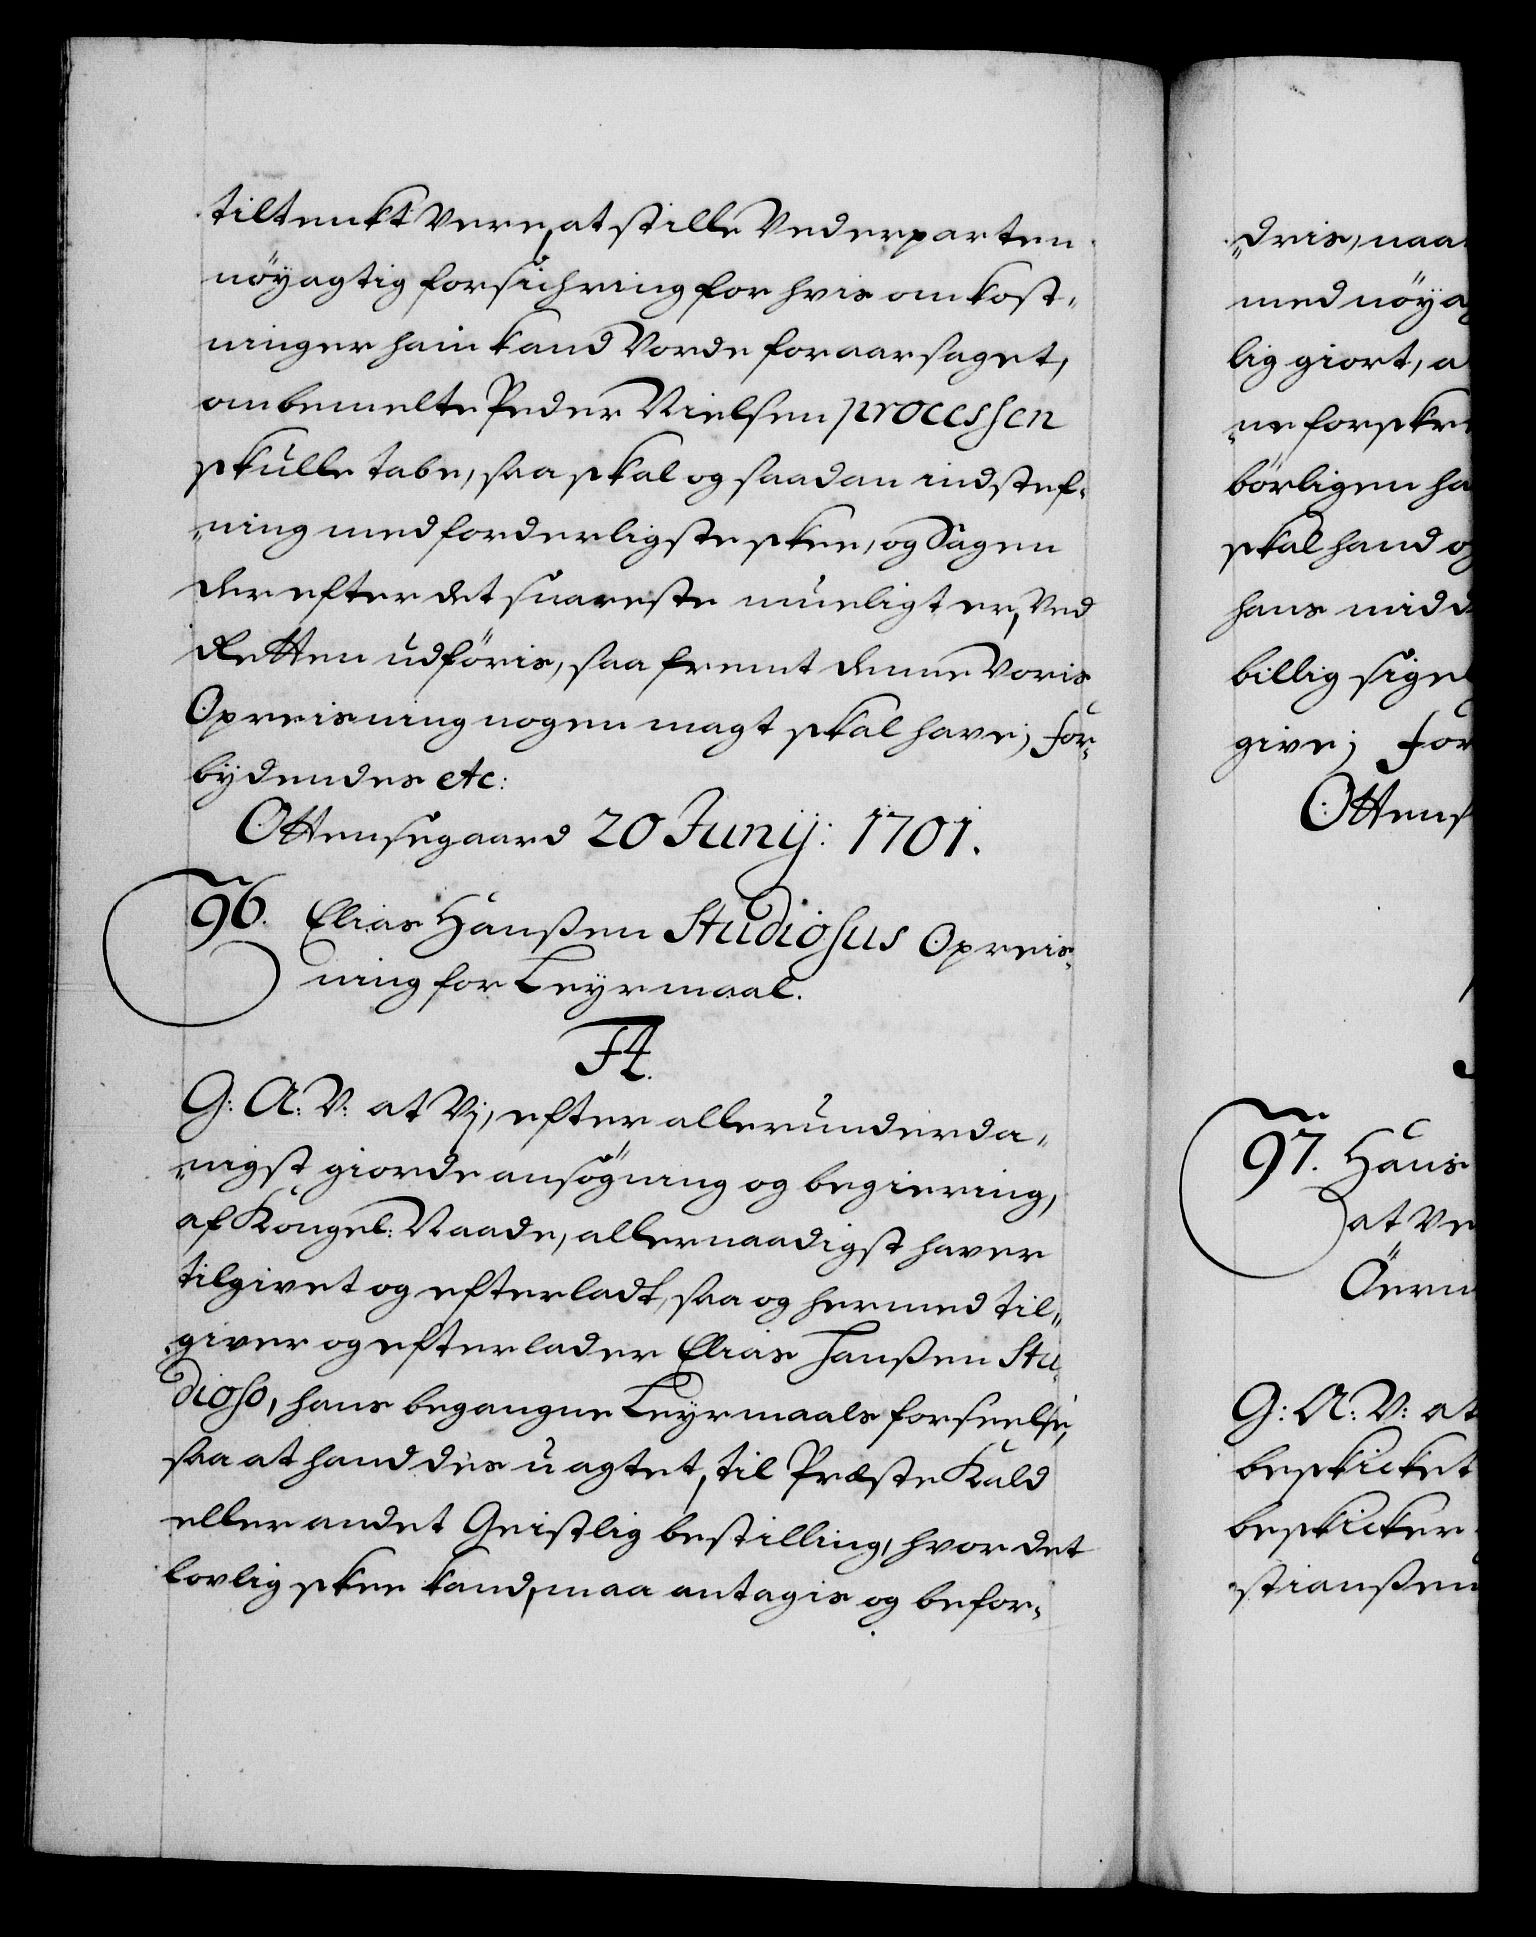 tiltenkt vere, at stille Vederparten
nöyagtig forsichring for hvis omkost-
ninger hain kand vorde foraarsaget,
ombemelte Peder Nielsen processen
skulle tabe, saa skal og saadan indstef-
ning med forderligste skee, og Sagen
der efter det snareste mueligt er, ved
Retten udföris, saa fremt denne voris
Opreisning nogen magt skal have; For-
bydendes etc:
Ottensegaard 20 Junij: 1701.
96. Elias Hanßen Studiosus Opreis-
ning for Leyermaal.
F4.
G: A: V: at Vj, efter allerunderda-
nigst giorde ansögning og begiering,
af Kongel: Naade, allernaadigst haver
tilgivet og efterladt, saa og hermed til-
giver og efterlader Elias Hanßen Stu-
dioso, hans begangne Leyrmaals forseelse,
saa at hand des uagtet, til Præste Kald
eller andet Geistlig bestilling, hvor det
lovlig skee kand, maa antagis og befor-
dris, naa
med nöyag
lig giort, a
ne forskre
börligen ha
skal hand og
hans midd
billig sigel
give; For
Ottens
97. Hans
at ve
G: A: V: at
beskicket
beskicker
stianßen